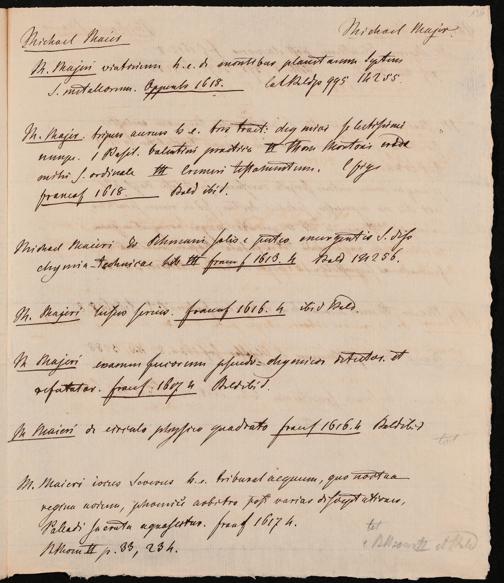 Michael Maier
Michael Major.
M. Majeri viatorium h.e. de montibus planetarum septem
S. metallorum. Oppenh 1618. cat Baldp 995 14255.
M. Majer. tripus aureus h.e. tres tract. chymici selectissimi
nempe. I Basil. Valentini practica II Thom Nortoni
S. ordinale III Cremeri testamentum.
francof 1618 Bald ibid.
Michael Maieri de solis e puteo emergentis S. diss
chymio-technicae lib III francf 1613. 4 Bald 14256.
M. Majeri lusus serius. francof 1616. 4 ibid Bald.
M Majeri examen fucorum pseudo-chymicor detector. et
refutator. francf. 1617 4 Bald ibid.
M Maieri de circulo physico quadrato francf 1616. 4 Bald ibid
M. Maieri iocus Severus h.e. tribunal aequum, quo noctua
regina avium, phoenice arbitro post varias disceptationes,
Palladi sacrata agnoscitur. francf 1617 4.
II p. 33, 234.